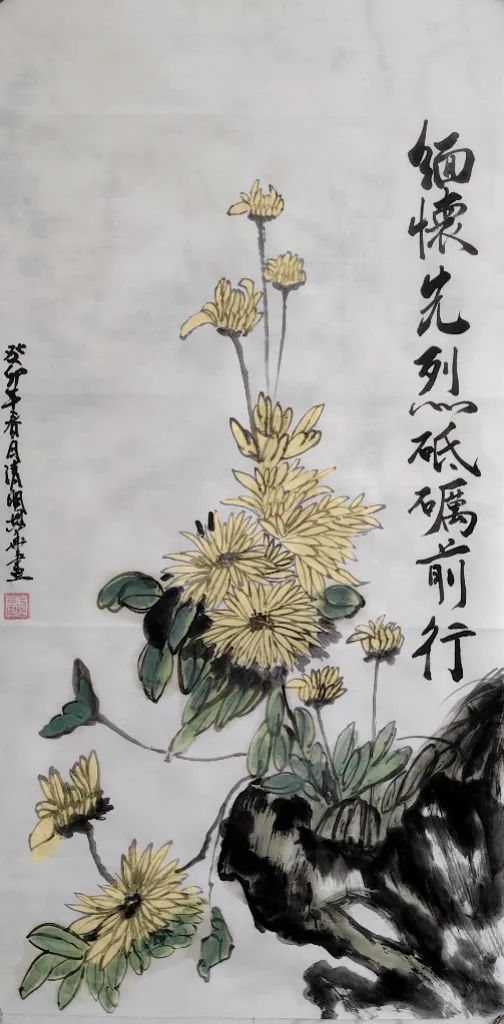 缅懷先烈砥礪前行
癸卯年春月清
画